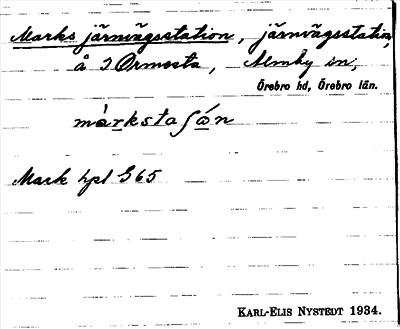 Marks järnvägsstation, järnvägsstation,
å 2 Ormesta, Almby sn,
Örebro hd, Örebro län.
màrkstaʃón
Mark hpl G 65
KARL-ELIS NYSTEDT 1934.